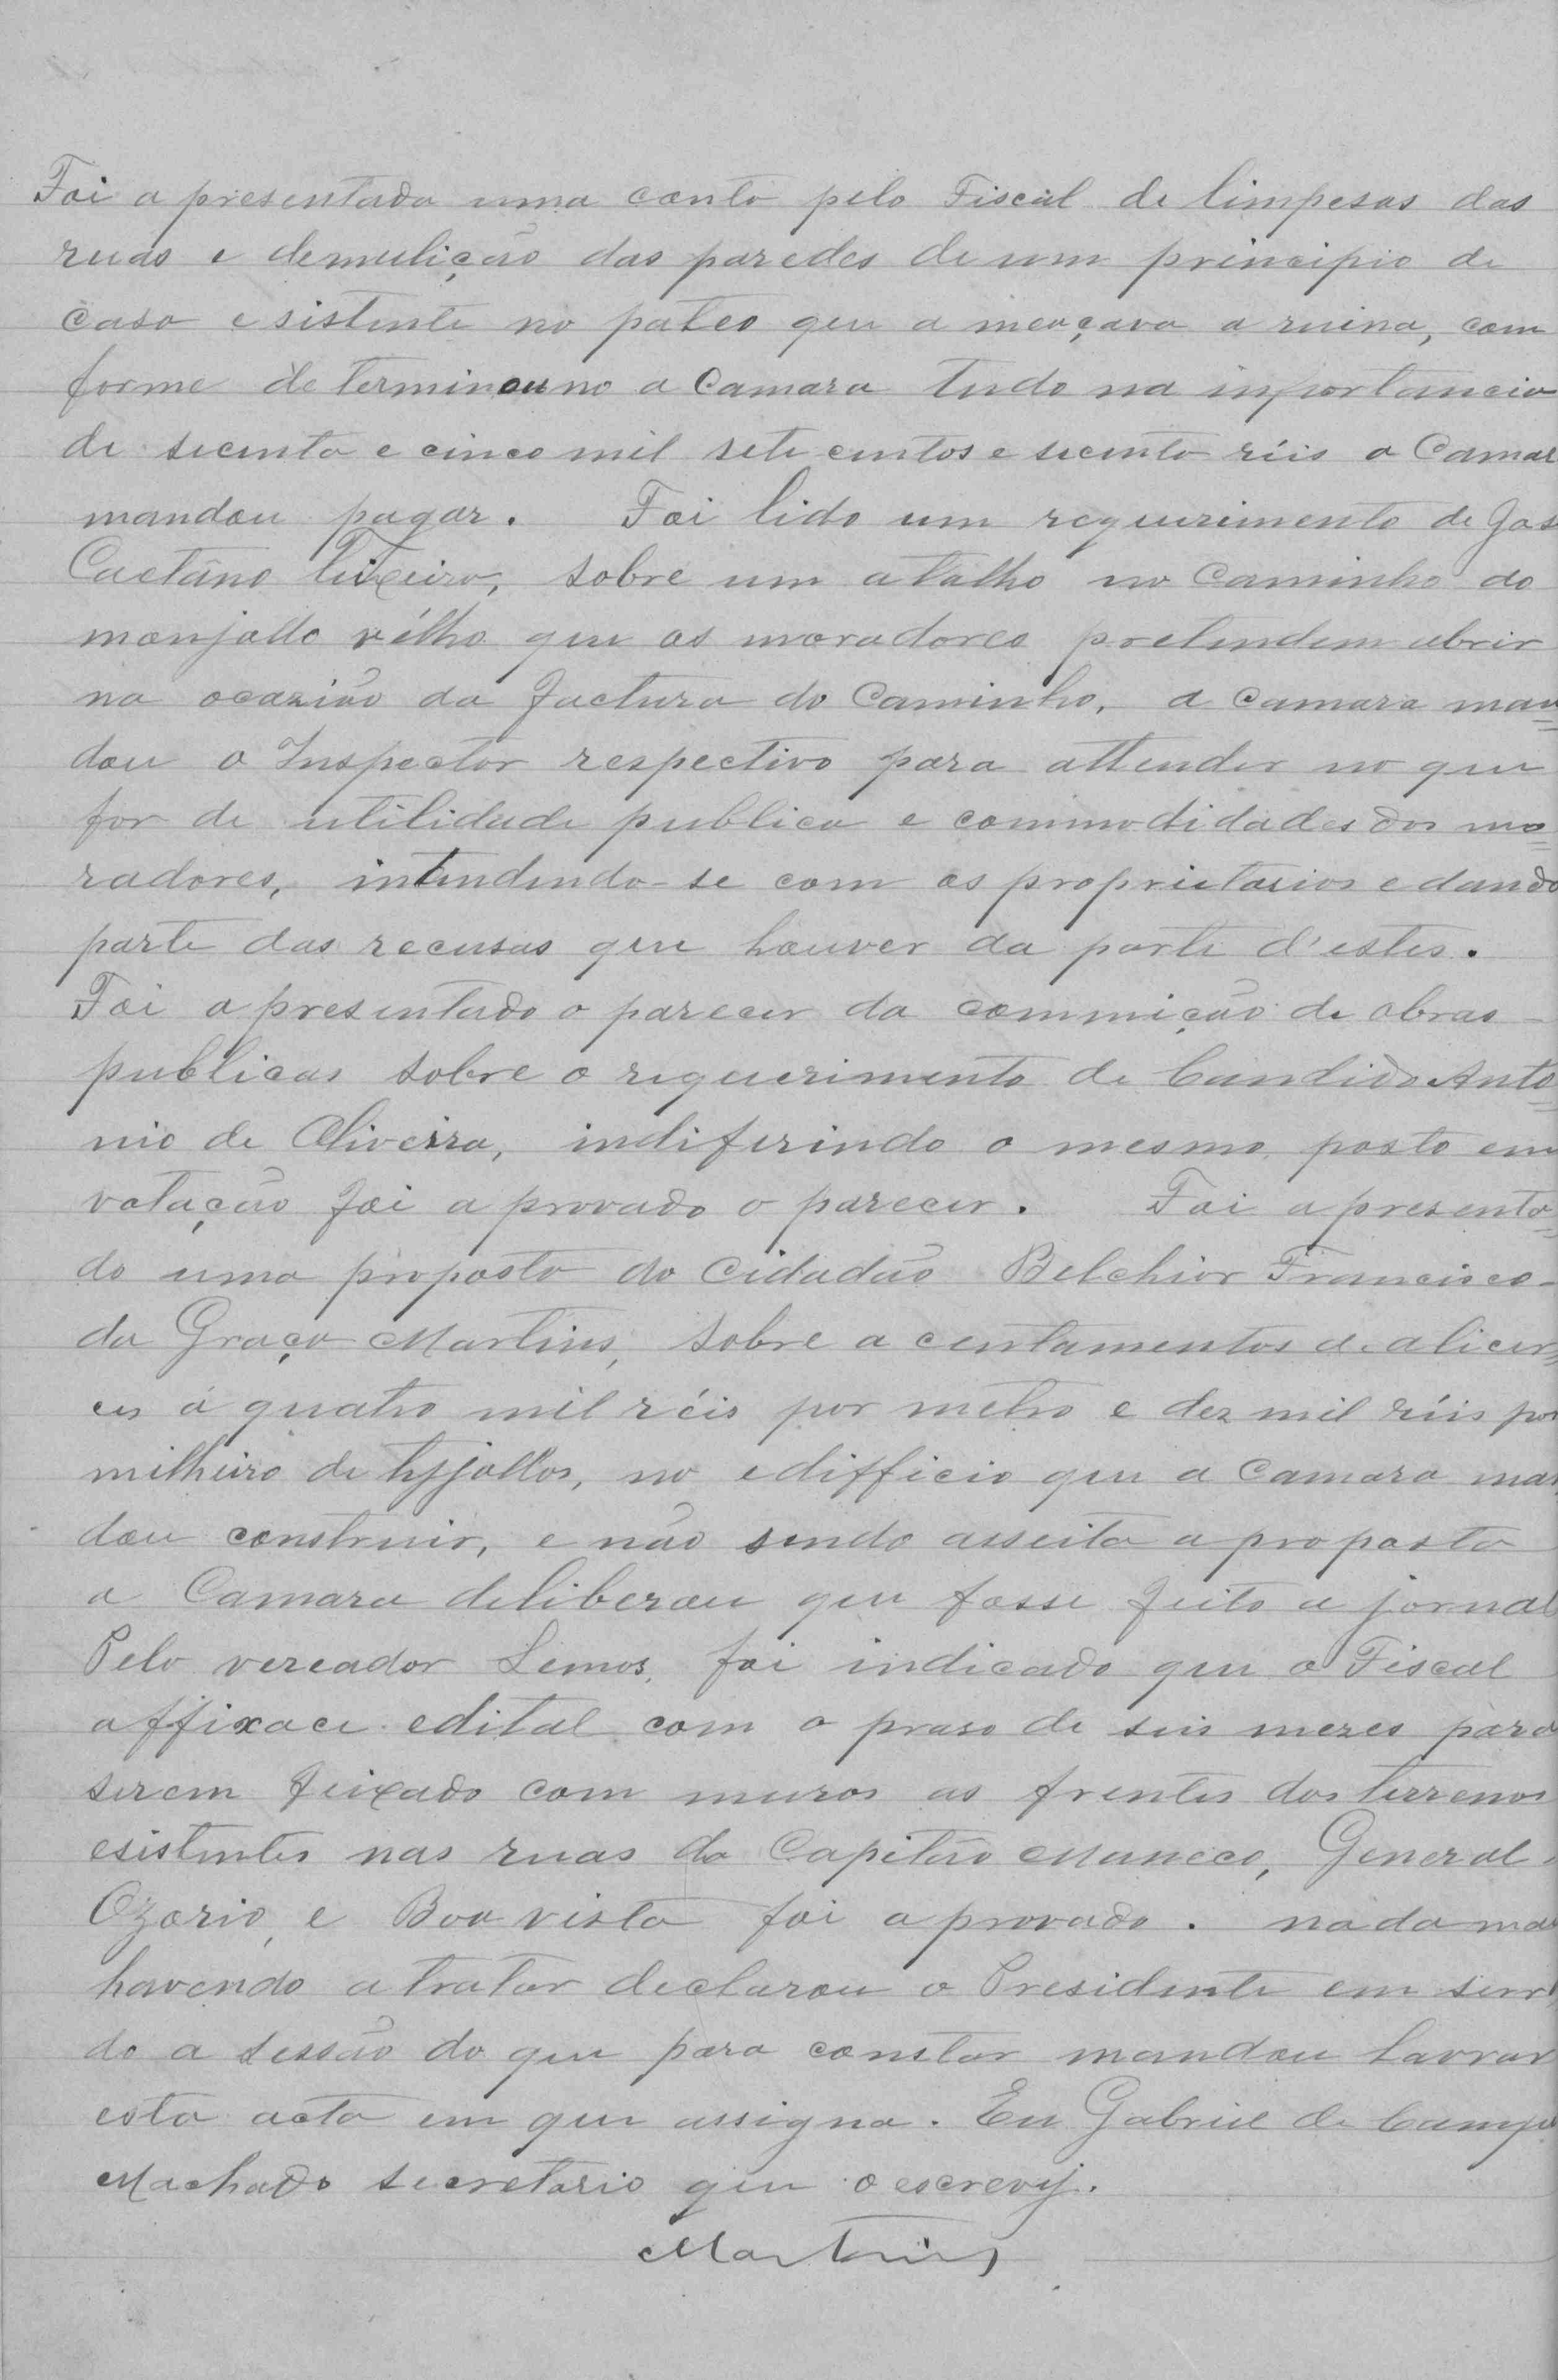 Foi apresentada uma conta pelo Fiscal de limpesas das
ruas e demulição das paredes de um principio de
casa esistente no pateo que ameaçava a ruina, com
forme determinouno a Camara tudo na inportancia
de secenta e cinco mil sete centos e secenta réis a Camar
mandou pagar. Foi lido um requerimento de Jos
Caetano Teixeira, sobre um atalho no Caminho do
monjollo vélho que os moradores pretendem abrir
na ocazião da factura do Caminho, a Camara man
dou o Inspector respectivo para attender no que
for de utilidade publica e commodidades dos mo
radores, intendendo-se com os proprietarios e dando
parte das recusas que houver da parte d'estes.
Foi apresentado o parecer da commição de obras
publicas sobre o requerimento de Candido Anto
nio de Oliveira, indiferindo o mesmo, posto em
votação foi aprovado o parecer. Foi apresenta
do uma proposta do Cidadão Belchior Francisco
da Graça Martins, sobre acentamentos de alicer
ces á quatro mil réis por metro e dez mil réis por
milheiro de tyjollos, no edifficio que a Camara man
dou construir, e não sendo asseita a proposta
a Camara deliberou que fosse feito a jornal
Pelo vereador Lemos, foi indicado que o Fiscal
affixace edital com o praso de seis mezes para
serem feixado com muros as frentes dos terrenos
esistentes nas ruas do Capitão Maneco, General
Ozorio, e Boa vista foi aprovado. nada ma
havendo a tratar declarou o Presidente em serra
do a sessão do que para constar mandou lavrar
esta acta em que assigna. Eu Gabriel de Campo
Machado secretario que o escrevy.
Martins